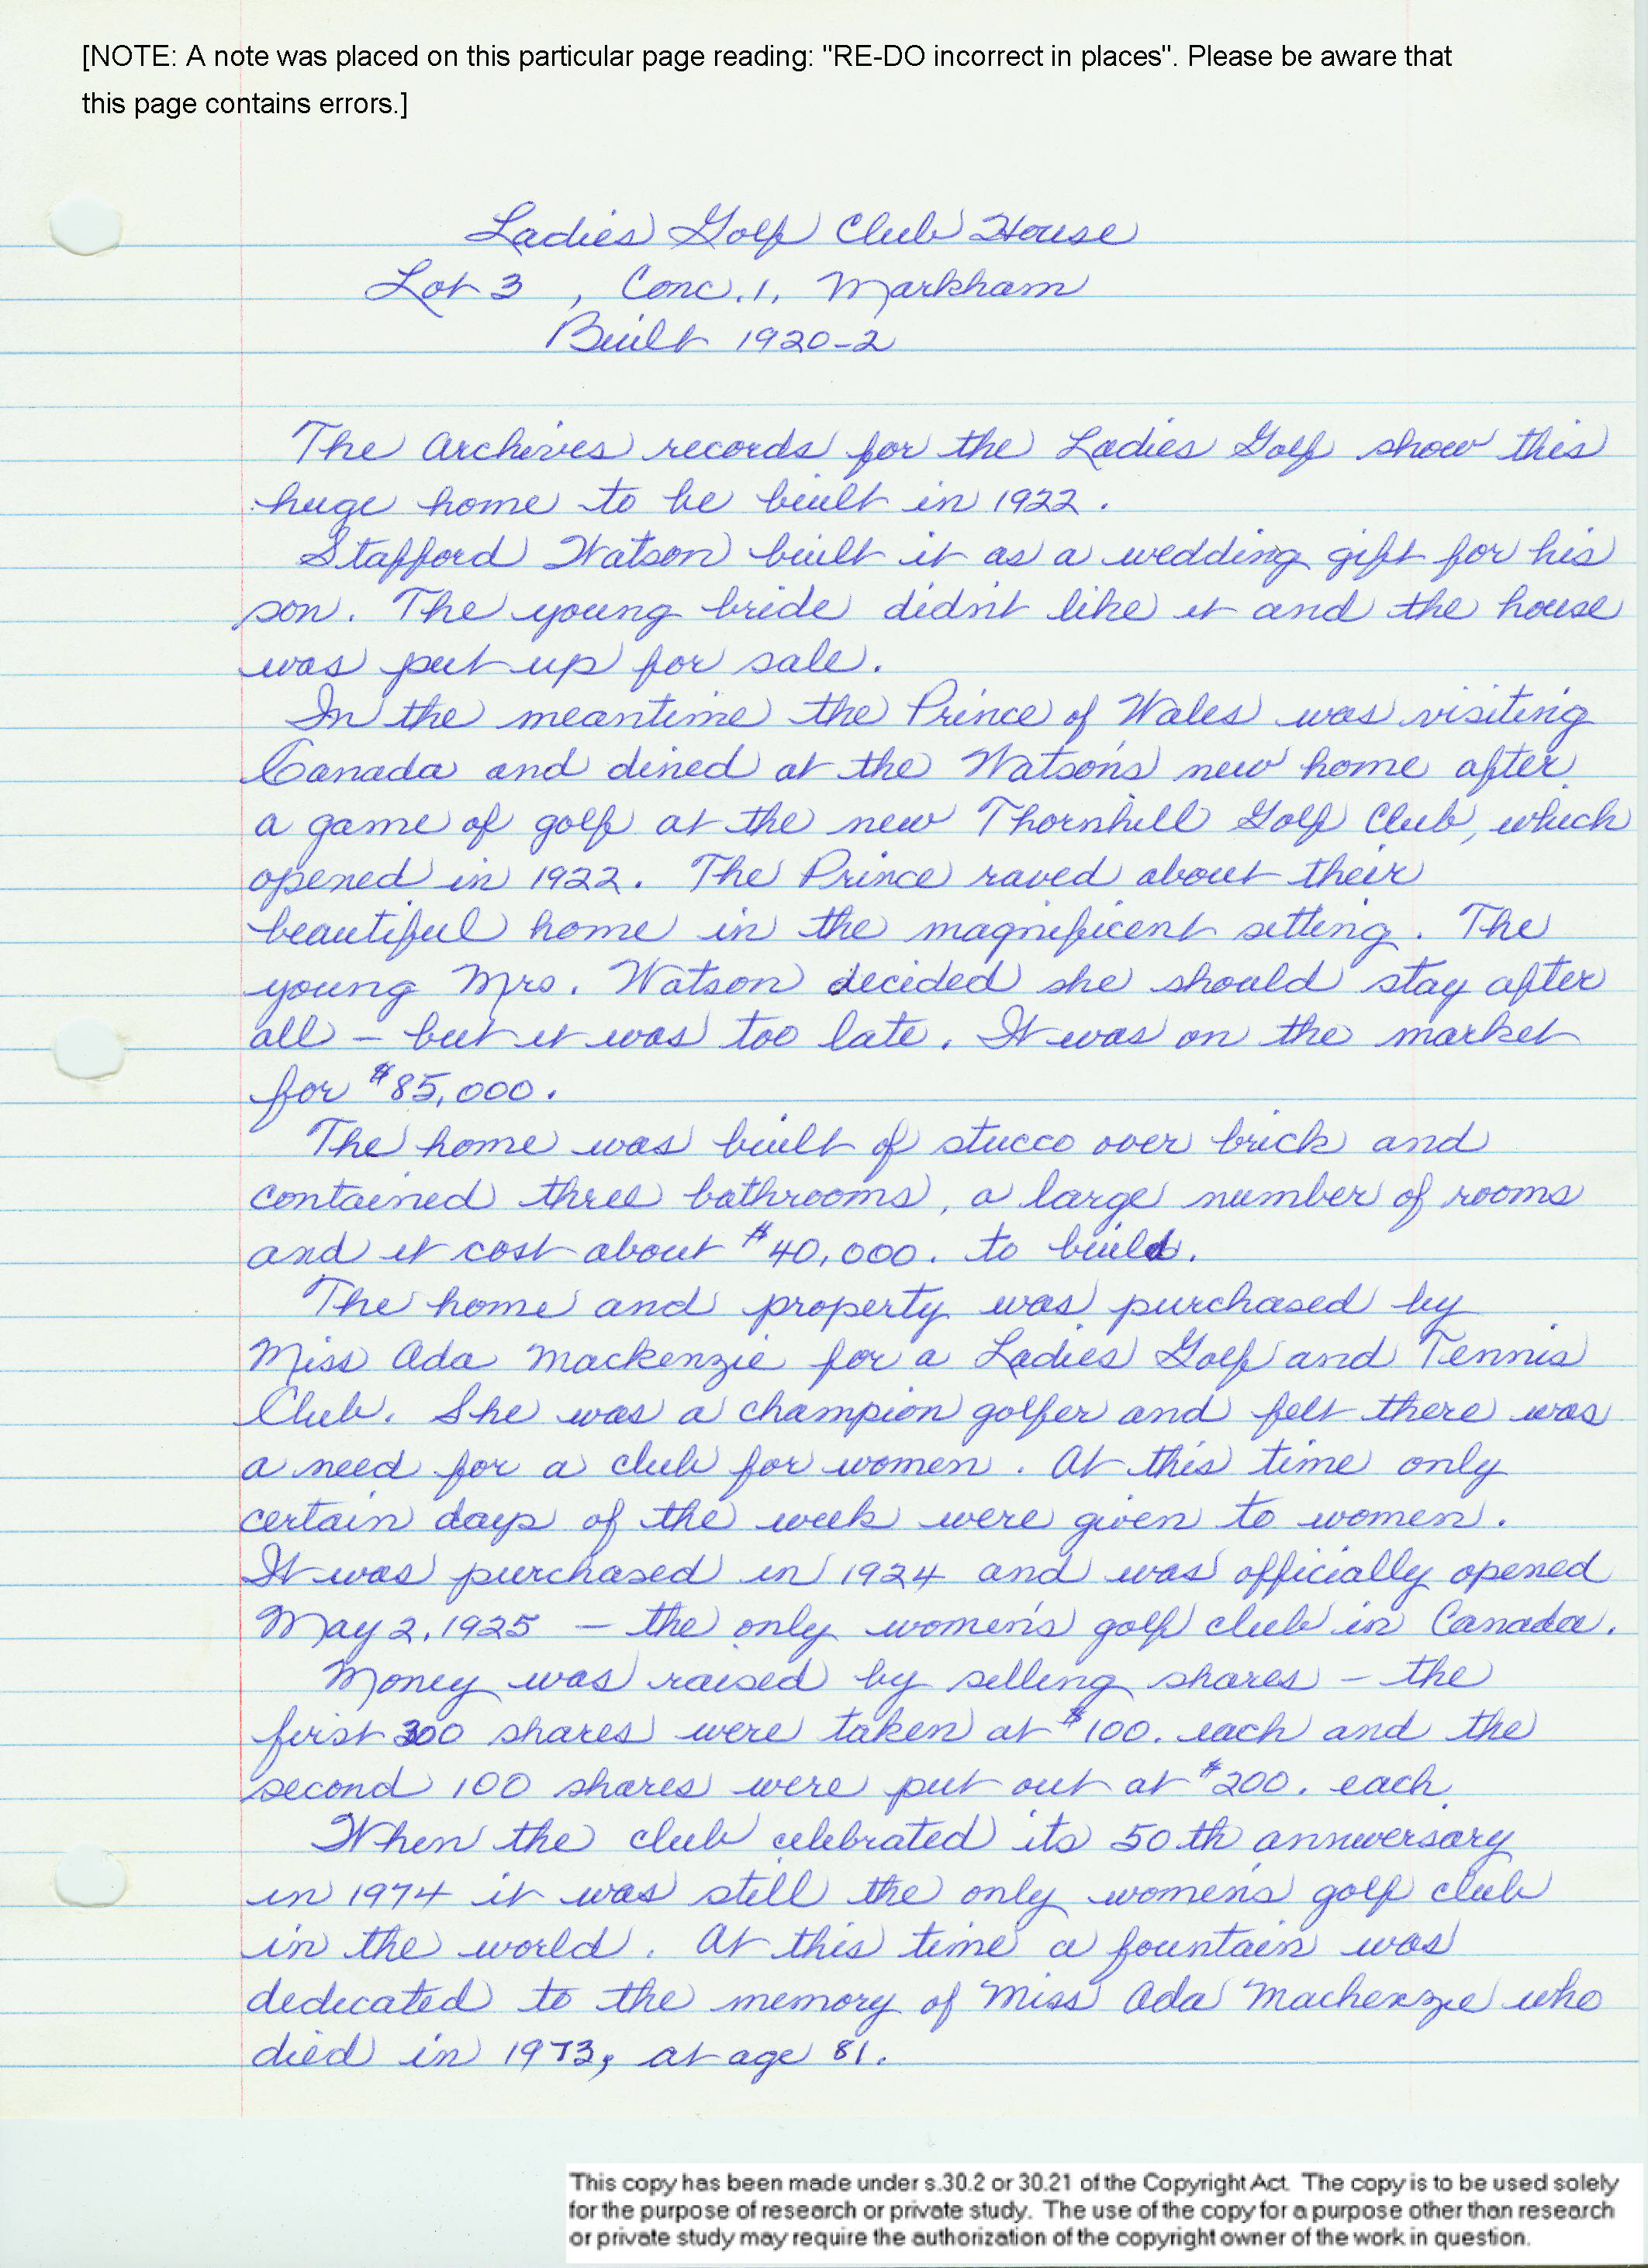 [NOTE: A note was placed on this particular page reading: "RE-DO incorrect in places". Please be aware that
this page contains errors.]
Ladies Golf Club House
Lot 3 , Conc. 1, Markham
Built 1920-2
The Archives records for the Ladies Golf show this
huge home to be built in 1922.
Stafford Watson built it as a wedding gift for his
son. The young bride didn't like it and the house
was put up for sale.
In the meantime the Prince of Wales was visiting
Canada and dined at the Watson's new home after
a game of golf at the new Thornhill Golf Club, which
opened in 1922. The Prince raved about their
beautiful home in the magnificent setting. The
young Mrs. Watson decided she should stay after
all – but it was too late. It was on the market
for $85,000.
The home was built of stucco over brick and
contained three bathrooms, a large number of rooms
and it cost about $40,000. to build.
The home and property was purchased by
Miss Ada Mackenzie for a Ladies Golf and Tennis
Club. She was a champion golfer and felt there was
a need for a club for women. At this time only
certain days of the week were given to women.
It was purchased in 1924 and was officially opened
May 2, 1925 – the only women's golf club in Canada.
Money was raised by selling shares – the
first 300 shares were taken at $100. each and the
second 100 shares were put out at $200. each.
When the club celebrated its 50th anniversary
in 1974 it was still the only women's golf club
in the world. At this time a fountain was
dedicated to the memory of Miss Ada Mackenzie who
died in 1973, at age 81.
This copy has been made under s.30.2 or 30.21 of the Copyright Act. The copy is to be used solely
for the purpose of research or private study. The use of the copy for a purpose other than research
or private study may require the authorization of the copyright owner of the work in question.